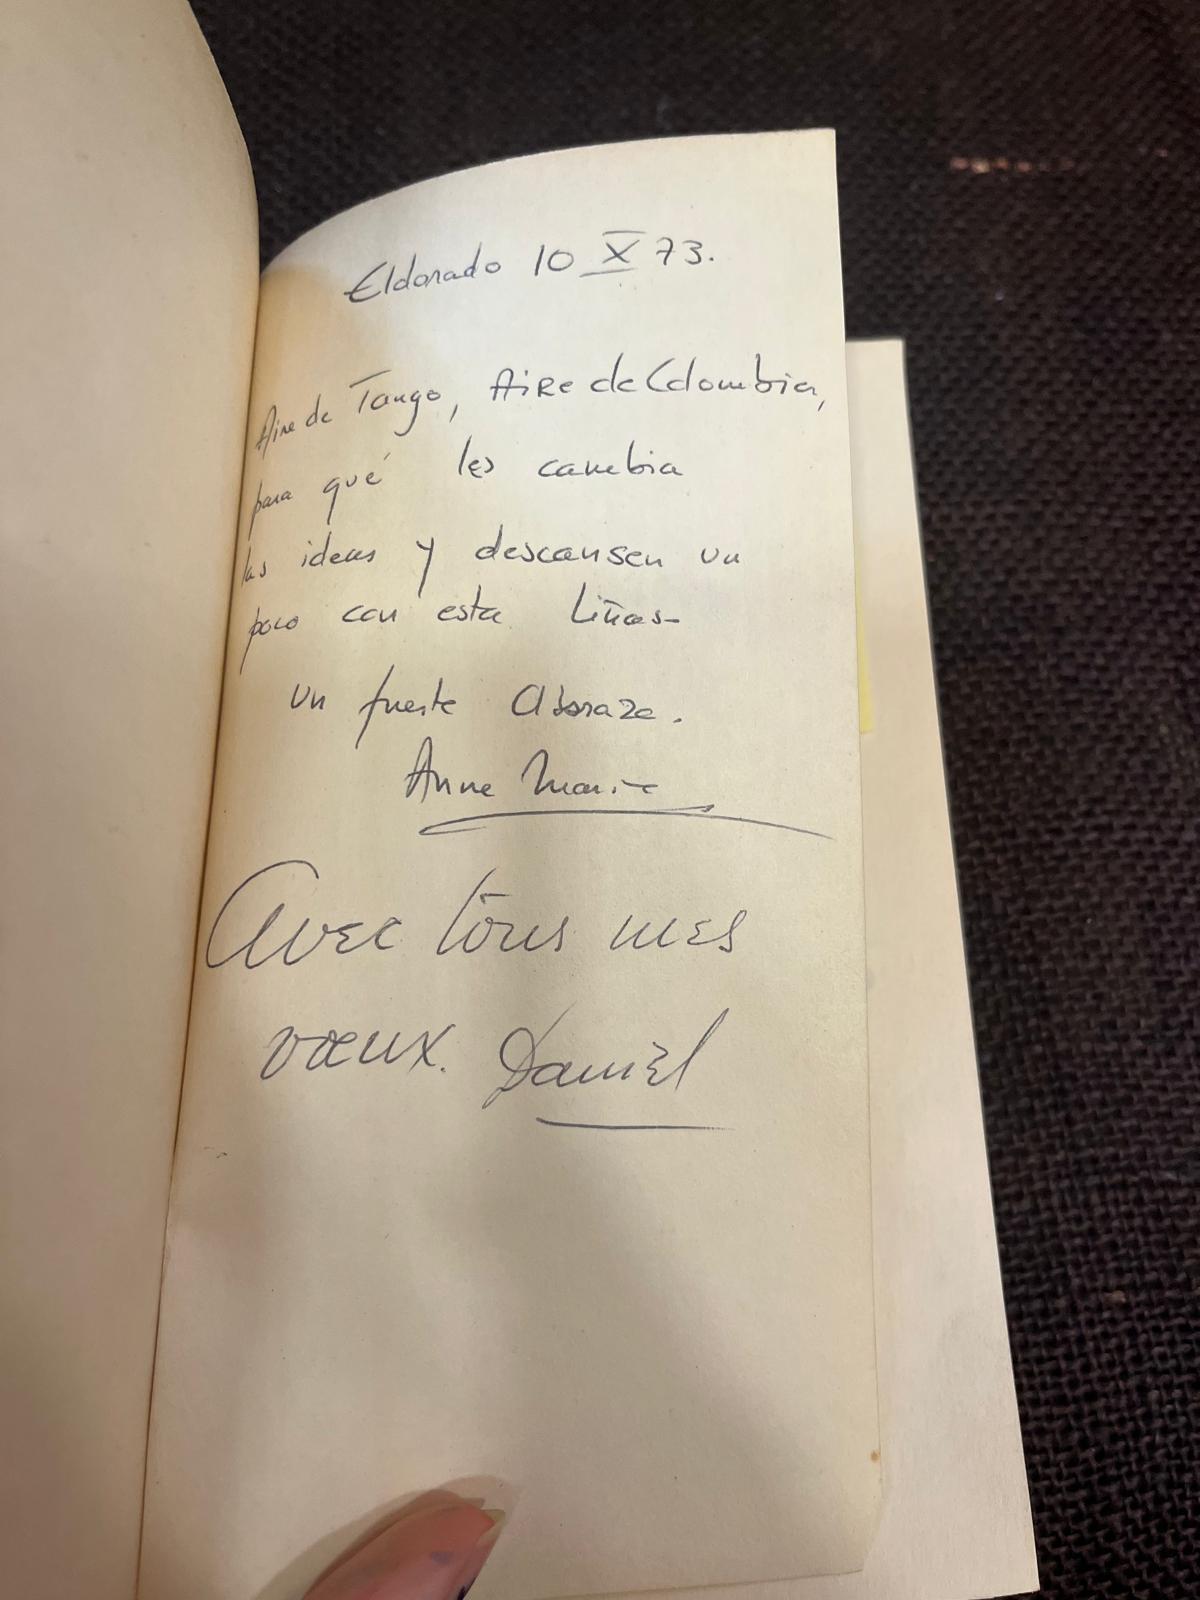 Eldorado 10 X 73.
Aire de Tango, Aire de Colombia,
para qué les cambia
las ideas y descansen un
poco con esta Liñas-
un fuerte Abrazo.
Anne Marie
Avec tous mes
vœux. Daniel